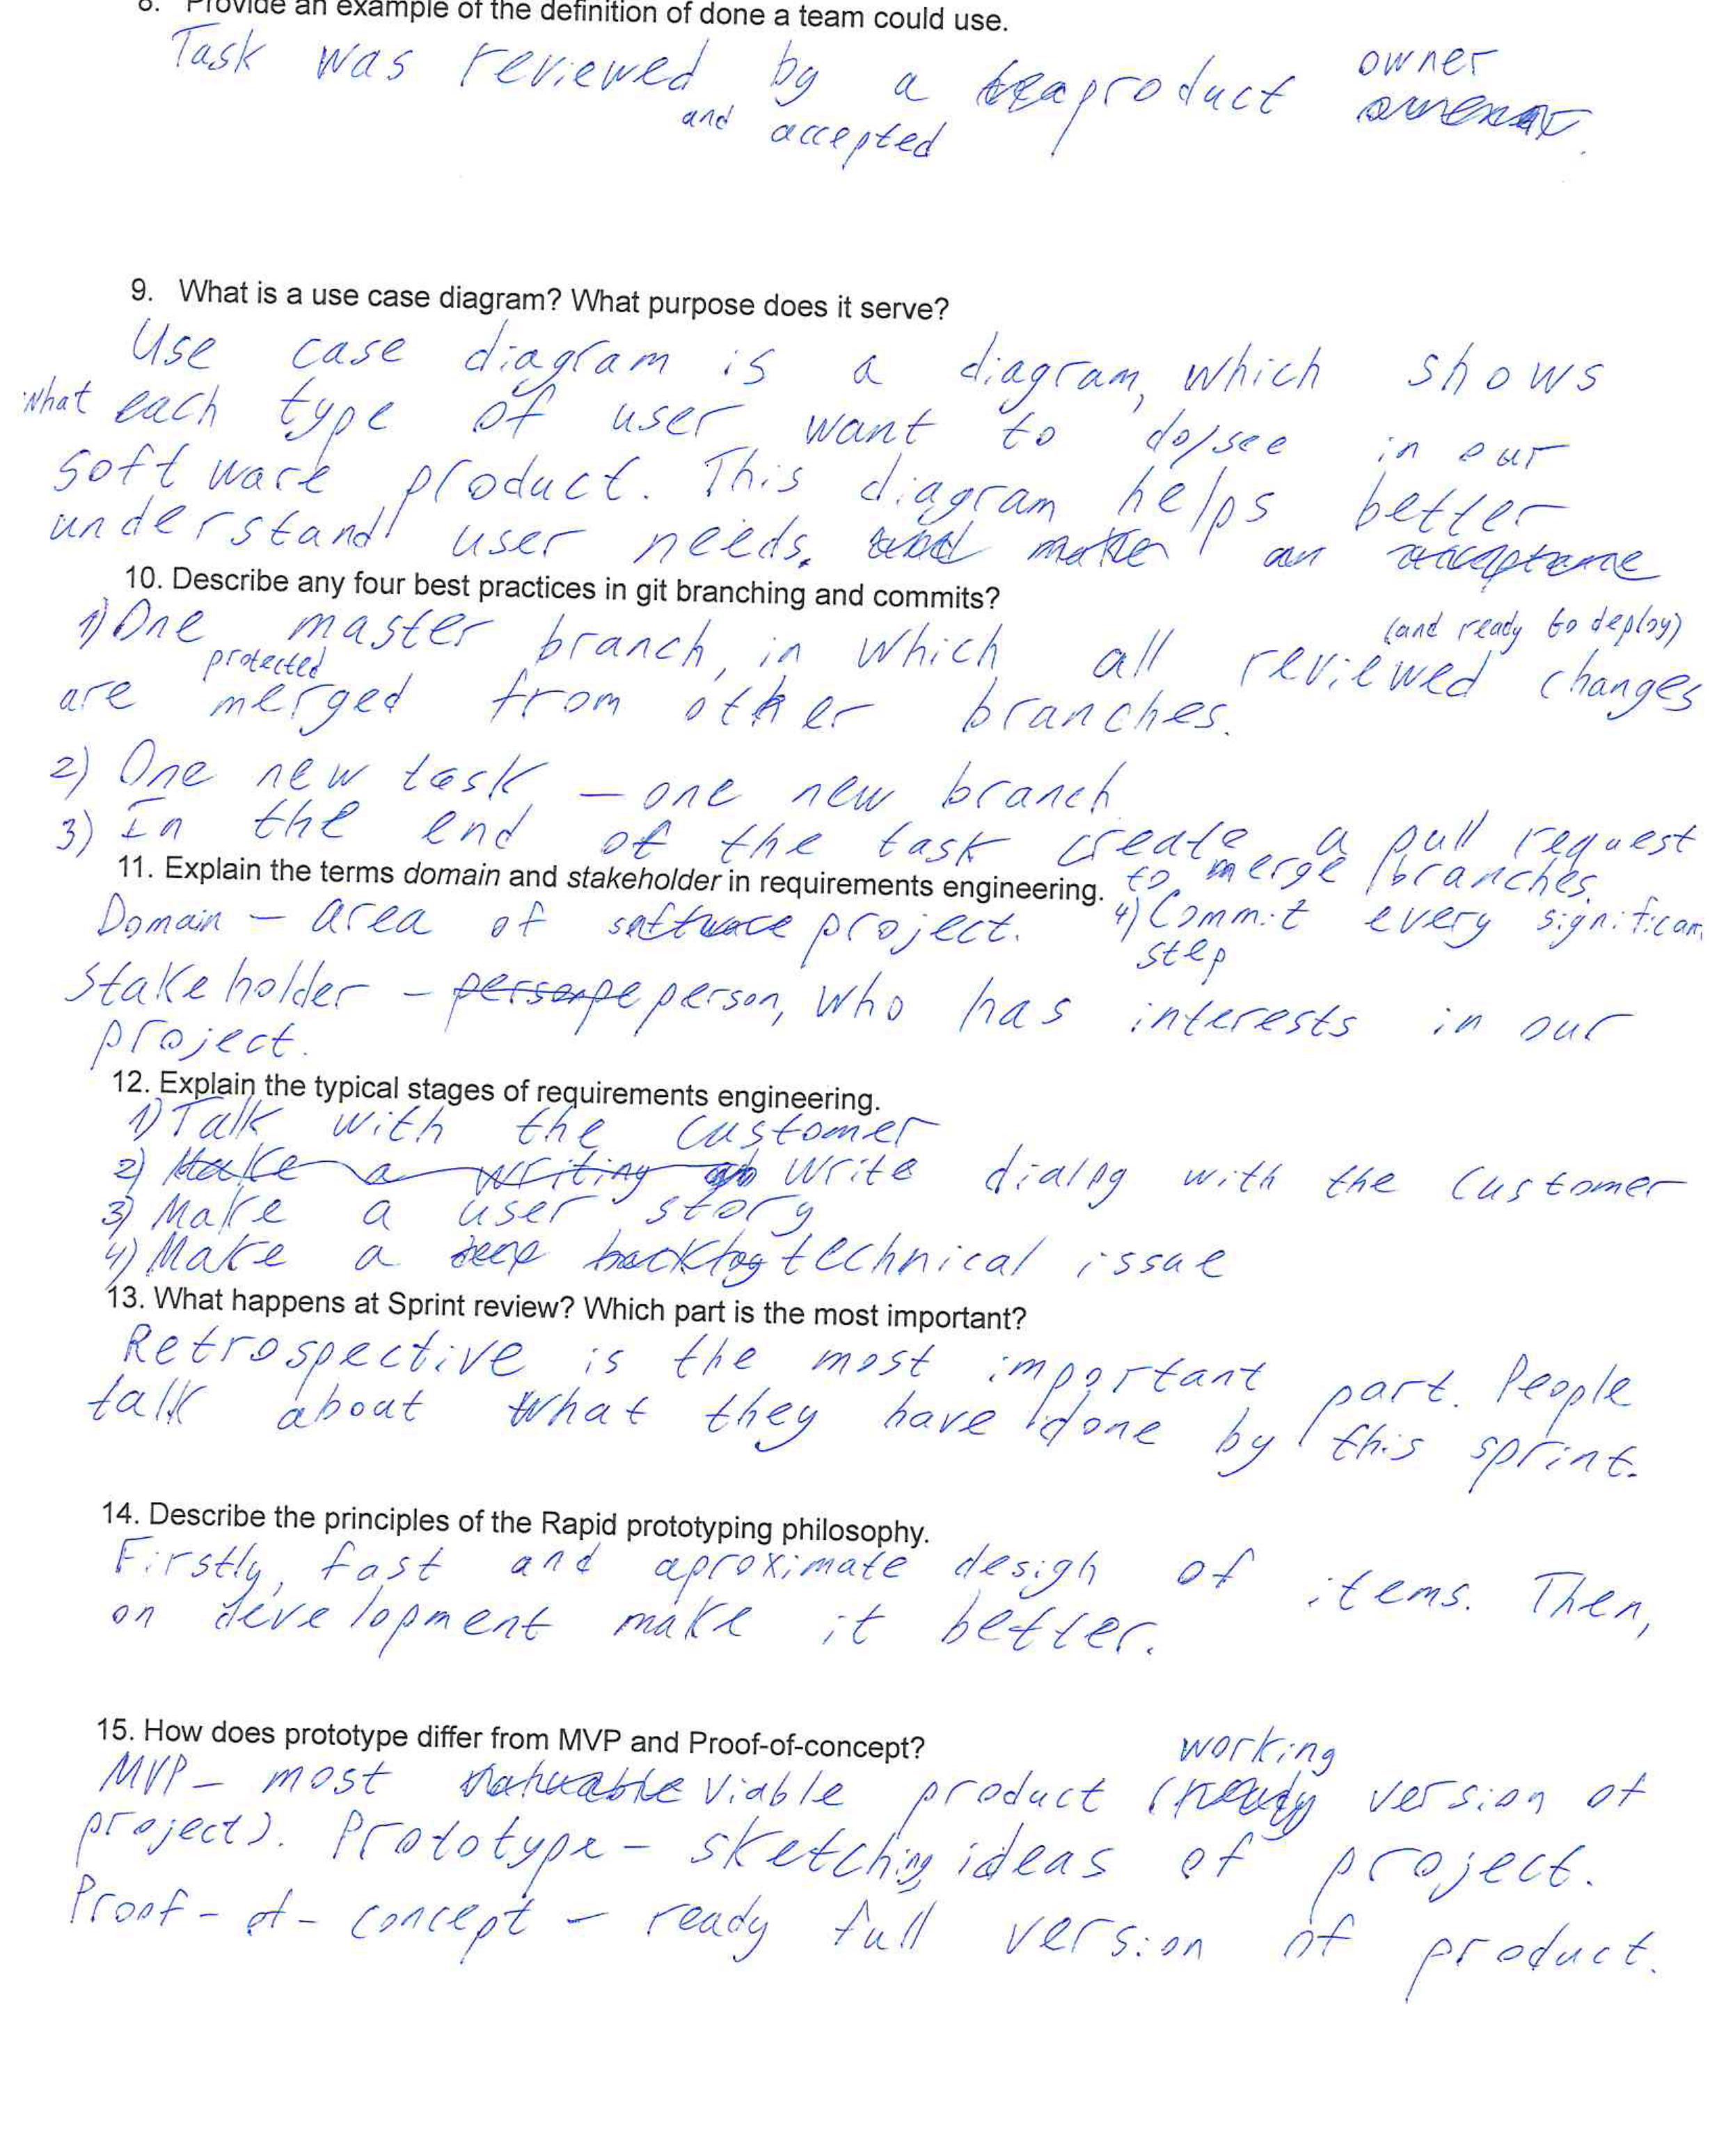 8. Provide an example of the definition of done a team could use.
owner
Task was reviewed by a product
and accepted
9. What is a use case diagram? What purpose does it serve?
Use case diagram is a diagram, which shows
what each type of user want to do/see in our
software product. This diagram helps better
understand user needs. and make an acceptance
10. Describe any four best practices in git branching and commits?
(and ready to deploy)
1) One master branch, in which all reviewed changes
protected
are merged from other branches.
2) One new task – one new branch
3) In the end of the task create a pull request
to merge branches.
11. Explain the terms domain and stakeholder in requirements engineering.
4) Commit every significan
step
Domain – area of software project.
Stakeholder – person, who has interests in our
project.
12. Explain the typical stages of requirements engineering.
1) Talk with the customer
2) Make a writing Write dialog with the customer
3) Make a user story
4) Make a backlog technical issue
13. What happens at Sprint review? Which part is the most important?
Retrospective is the most important part. People
talk about what they have done by this sprint.
14. Describe the principles of the Rapid prototyping philosophy.
Firstly, fast and aproximate desigh of items. Then,
on development make it better.
15. How does prototype differ from MVP and Proof-of-concept?
working
MVP – most valuable viable product (ready version of
project). Prototype – sketching ideas of project.
Proof-of-concept – ready full version of product.